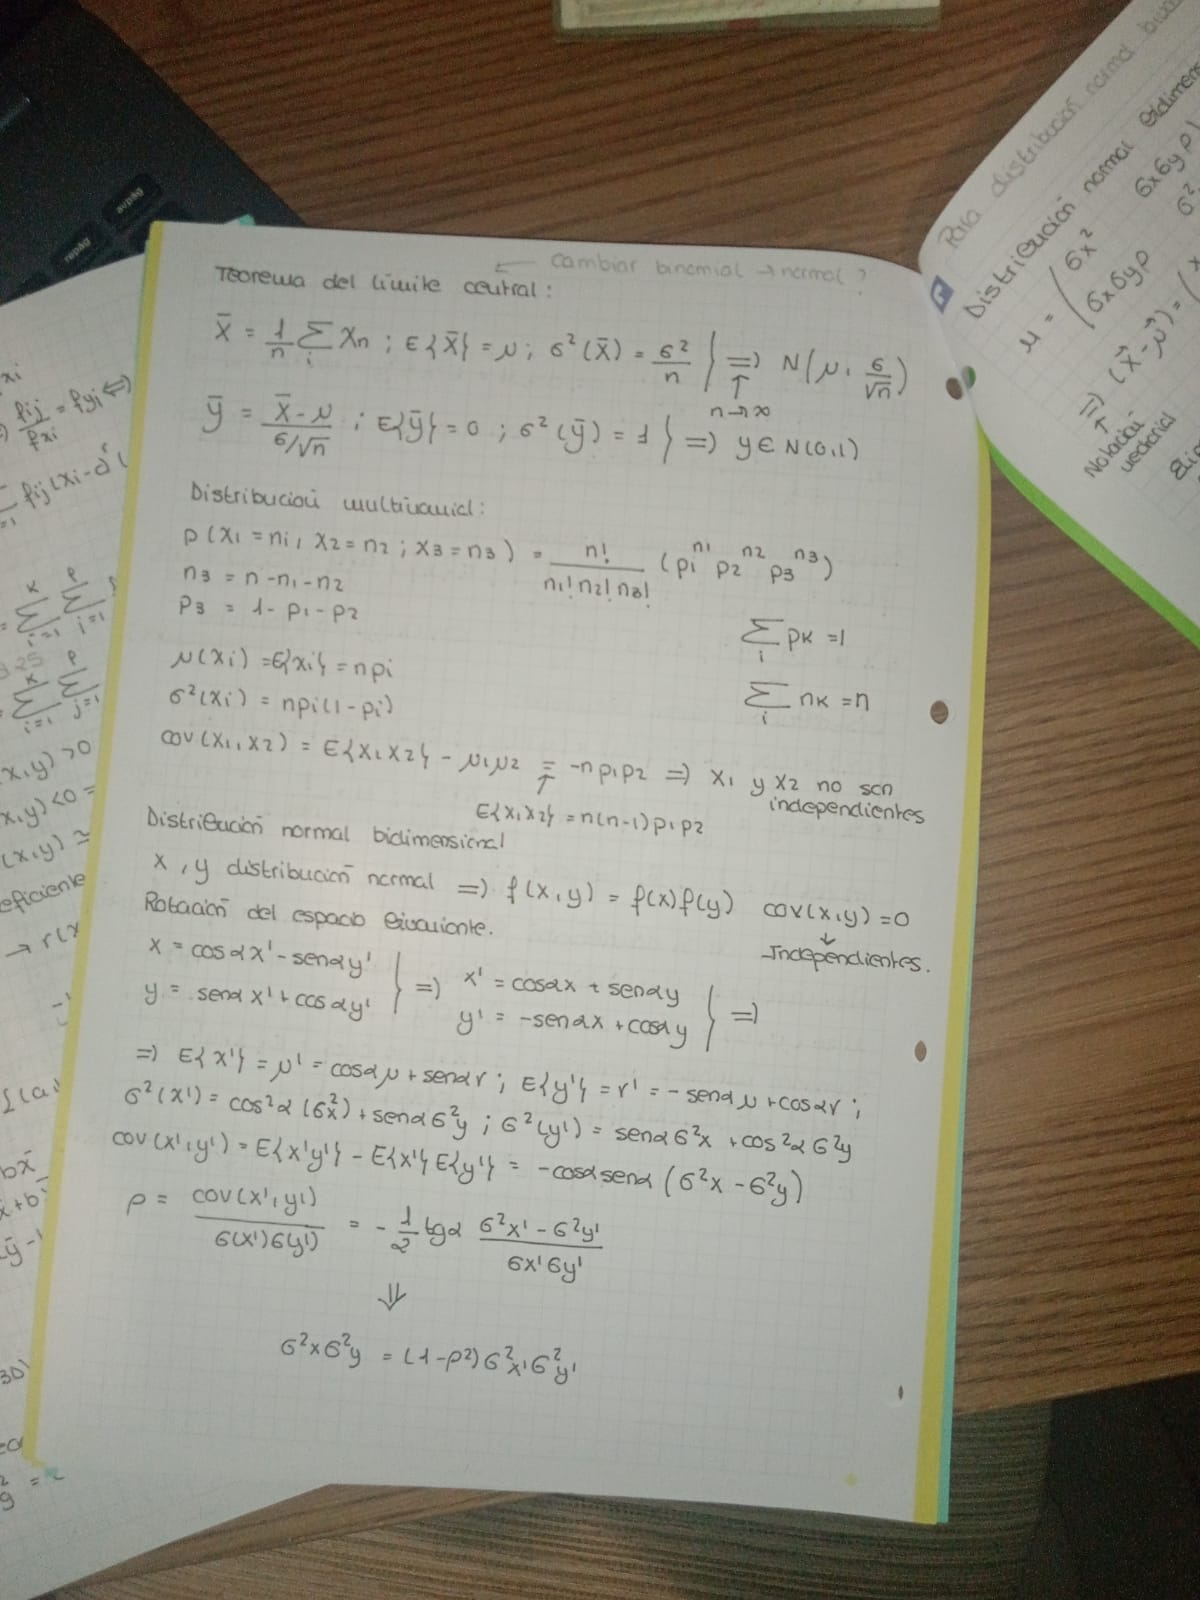 avpág
repág
← cambiar binomial → normal ?
Teorema del límite central:
X̄ = 1/n Σi Xn ; E{X̄} = μ ; σ²(X̄) = σ²/n } ⇒ N(μ, σ/√n)
↑
n→∞
ȳ = (X̄ - μ)/(σ/√n) ; E{ȳ} = 0 ; σ²(ȳ) = 1 } ⇒ y ∈ N(0,1)
Distribución multinomial:
P(X1 = n1, X2 = n2 ; X3 = n3) = n!/(n1! n2! n3!) (p1^n1 p2^n2 p3^n3)
n3 = n - n1 - n2
P3 = 1 - p1 - p2
Σi pk = 1
μ(xi) = E{xi} = npi
Σi nk = n
σ²(xi) = npi(1 - pi)
cov(x1, x2) = E{x1x2} - μ1μ2 = -np1p2 ⇒ x1 y x2 no son independientes
↑
E{x1x2} = n(n-1)p1p2
Distribución normal bidimensional
x, y distribución normal ⇒ f(x,y) = f(x)f(y) cov(x,y) = 0
↓
Independientes.
Rotación del espacio bivariante.
x = cosαx' - senαy'
y = senαx' + cosαy' } ⇒ x' = cosαx + senαy
y' = -senαx + cosαy } ⇒
⇒ E{x'} = μ' = cosαμ + senαr ; E{y'} = r' = -senαμ + cosαr ;
σ²(x') = cos²α(σ²x) + senασ²y ; σ²(y') = senασ²x + cos²ασ²y
cov(x',y') = E{x'y'} - E{x'}E{y'} = -cosαsenα(σ²x - σ²y)
ρ = cov(x',y')/(σ(x')σ(y')) = -1/2 tg2 (σ²x' - σ²y')/(σx'σy')
⇓
σ²xσ²y = (1-ρ²)σ²x'σ²y'
Para distribución normal
Distribución normal bidimens
μ = ( σx² σxσyρ
σxσyρ σ²
⇒ (x⃗ - μ⃗) = (
↑
Notación
vectorial
xi
fij/fxi = fyj ⇔
fij(xi-a
Σ i=1 Σ j=1
Σ i=1 Σ j=1
x,y) > 0
x,y) < 0 =
(x,y) ≈
eficiente
→ r(x
bx̄
x̄+b
30)